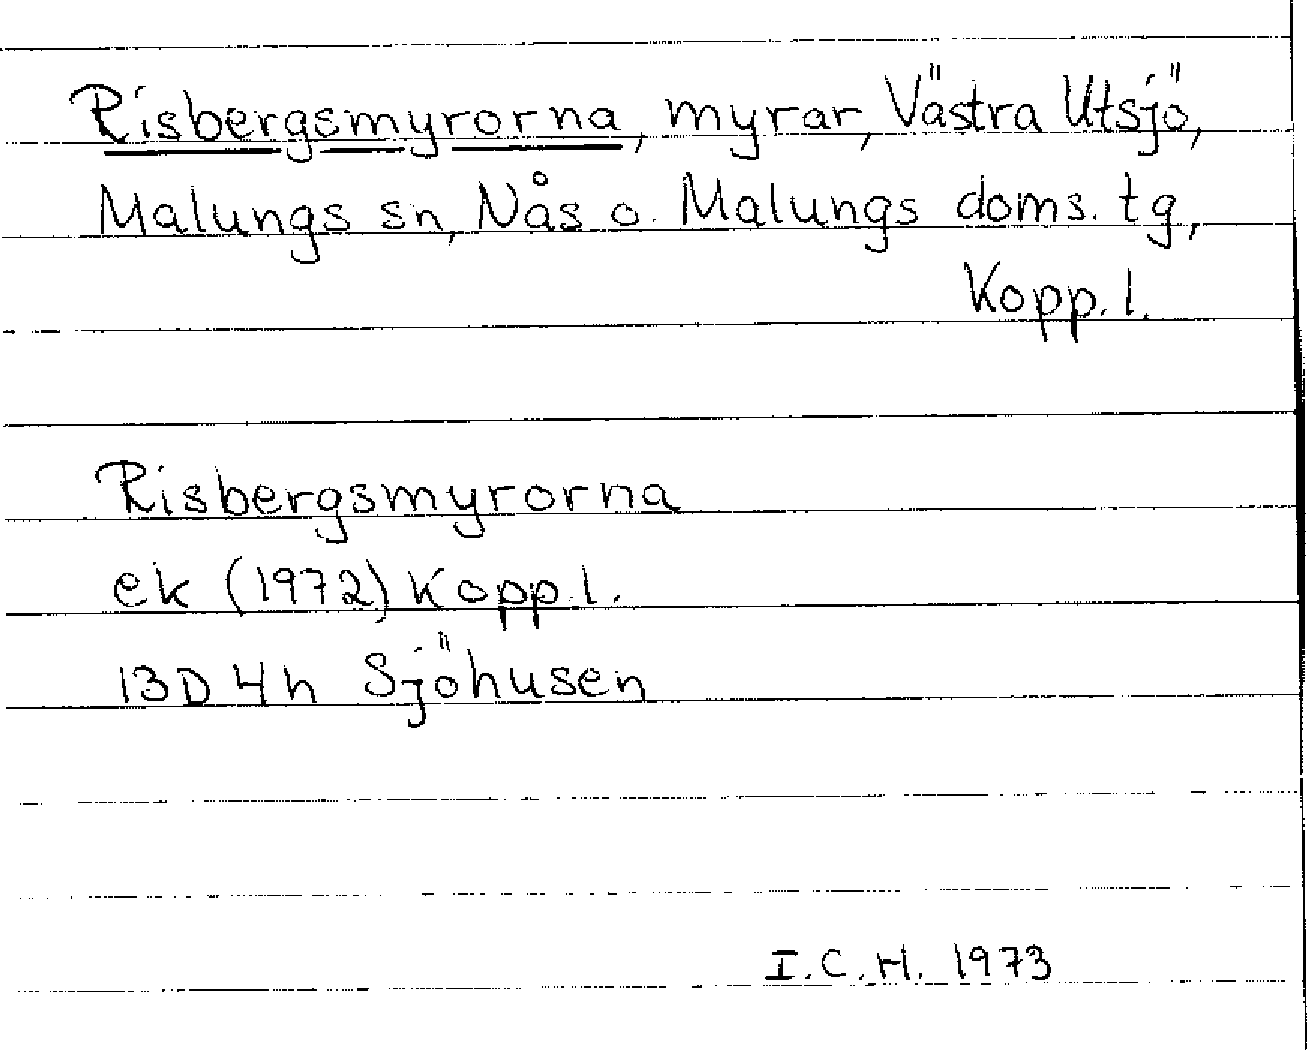 Risbergsmyrorna, myrar, Västra Utsjö,
Malungs sn, Nås o. Malungs doms. tg,
Kopp. l.
Risbergsmyrorna
ek (1972) Kopp. l.
13D 4h Sjöhusen
I.C.H. 1973